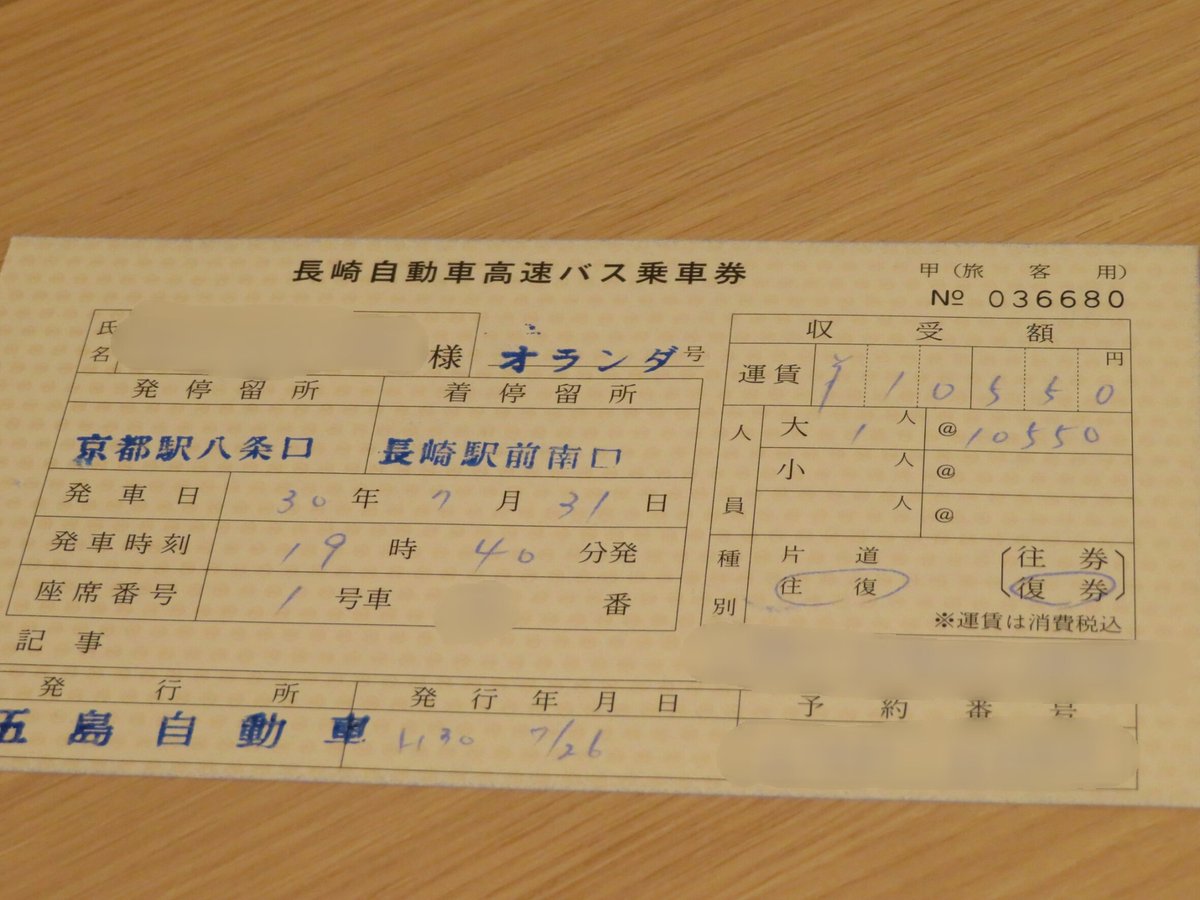 長崎自動車高速バス乗車券
甲(旅客用)
№ 036680
氏名 様
オランダ号
発停留所 着停留所
京都駅八条口 長崎駅前南口
発車日 30年 7月 31日
発車時刻 19時 40分発
座席番号 1号車 番
記事
収受額
運賃 ¥10550円
人員 大 1人 @10550
小 人 @
人 @
種別 片道 〔往券
往復 復券〕
※運賃は消費税込
発行所 発行年月日 予約番号
五島自動車 H30 7/26